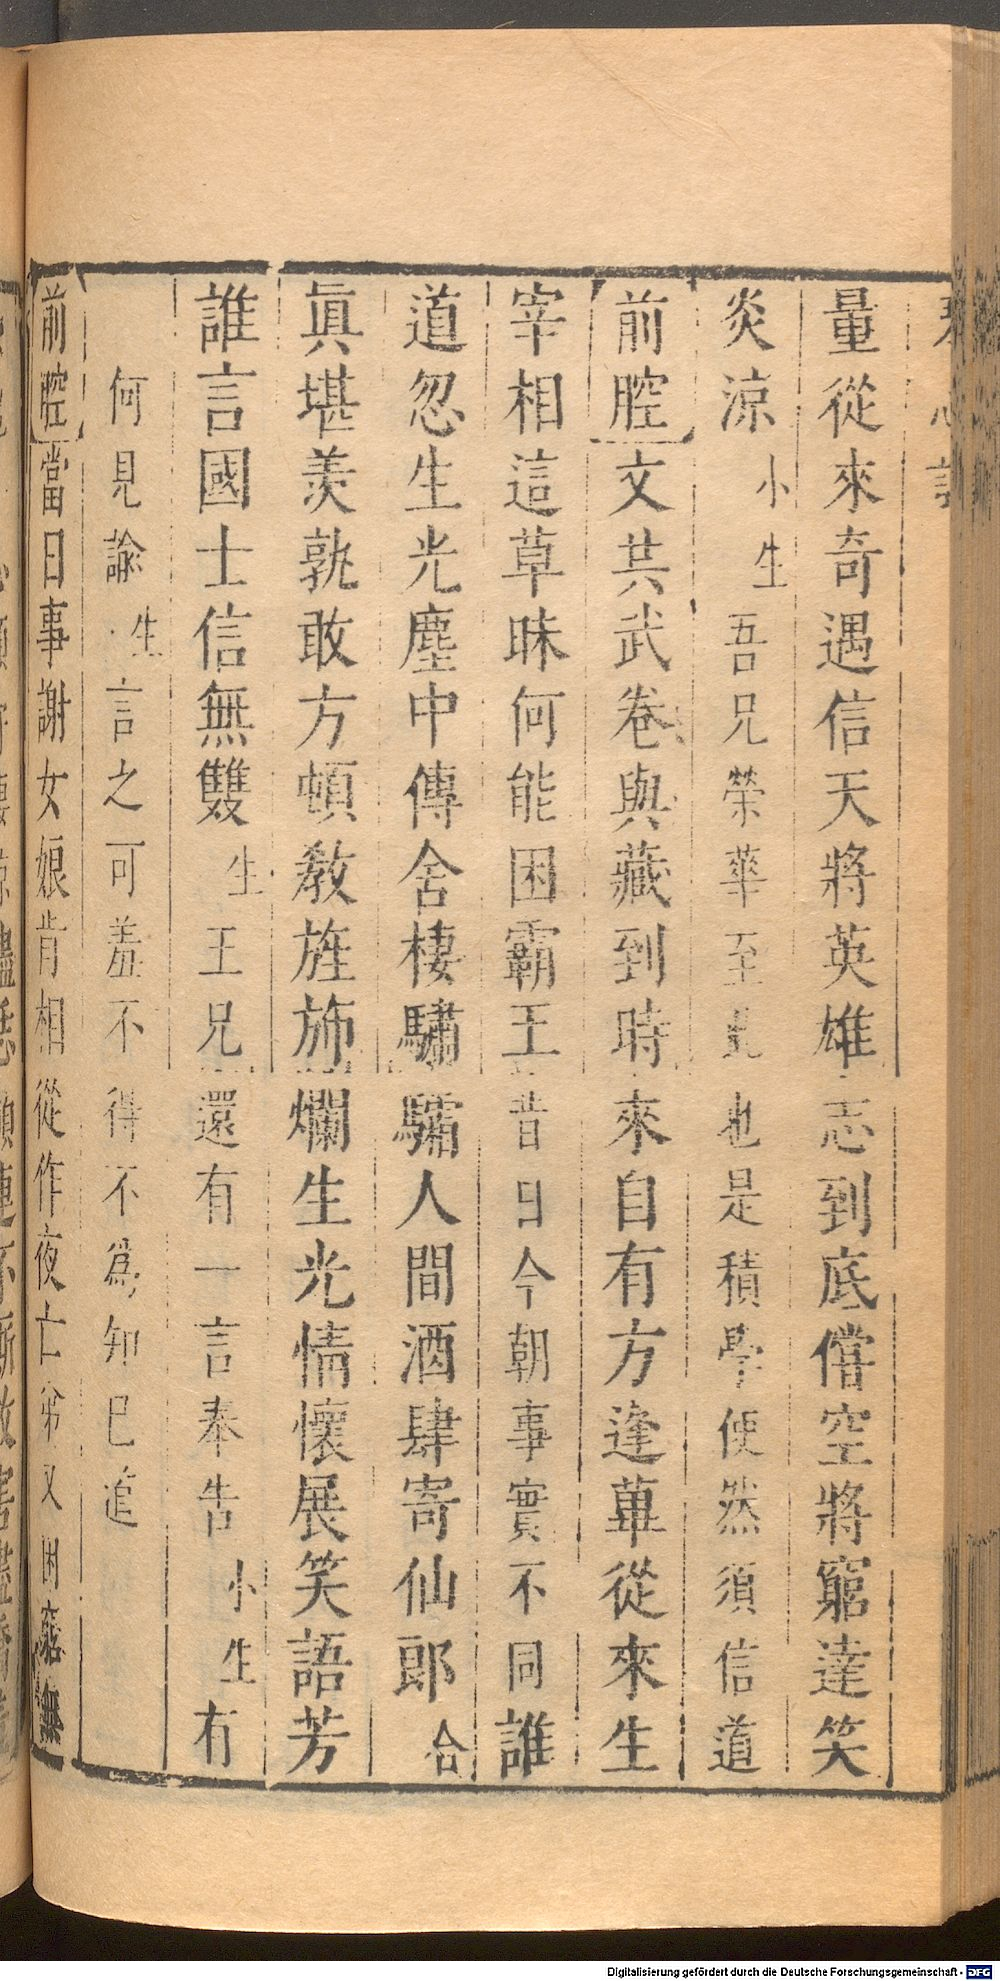 量從來奇遇信天將英雄志到底償空將窮達笑
炎涼小生吾兄榮華至此也是積學使然須信道
前腔文共武卷與藏到時來自有方逢華從來生
宰相這草昧何能困霸王昔日今朝事實不同誰
道忽生光塵中傳舍棲驌驦人間酒肆寄仙郎合
真堪羨孰敢方頓教旌斾爛生光情懷展笑語芳
誰言國士信無雙生王兄還有一言奉告小生有
何見諭生言之可羞不得不為知已道
前腔當日事謝女娘肯相從作夜亡弟又困窮無
Digitalisierung gefördert durch die Deutsche Forschungsgemeinschaft - DFG